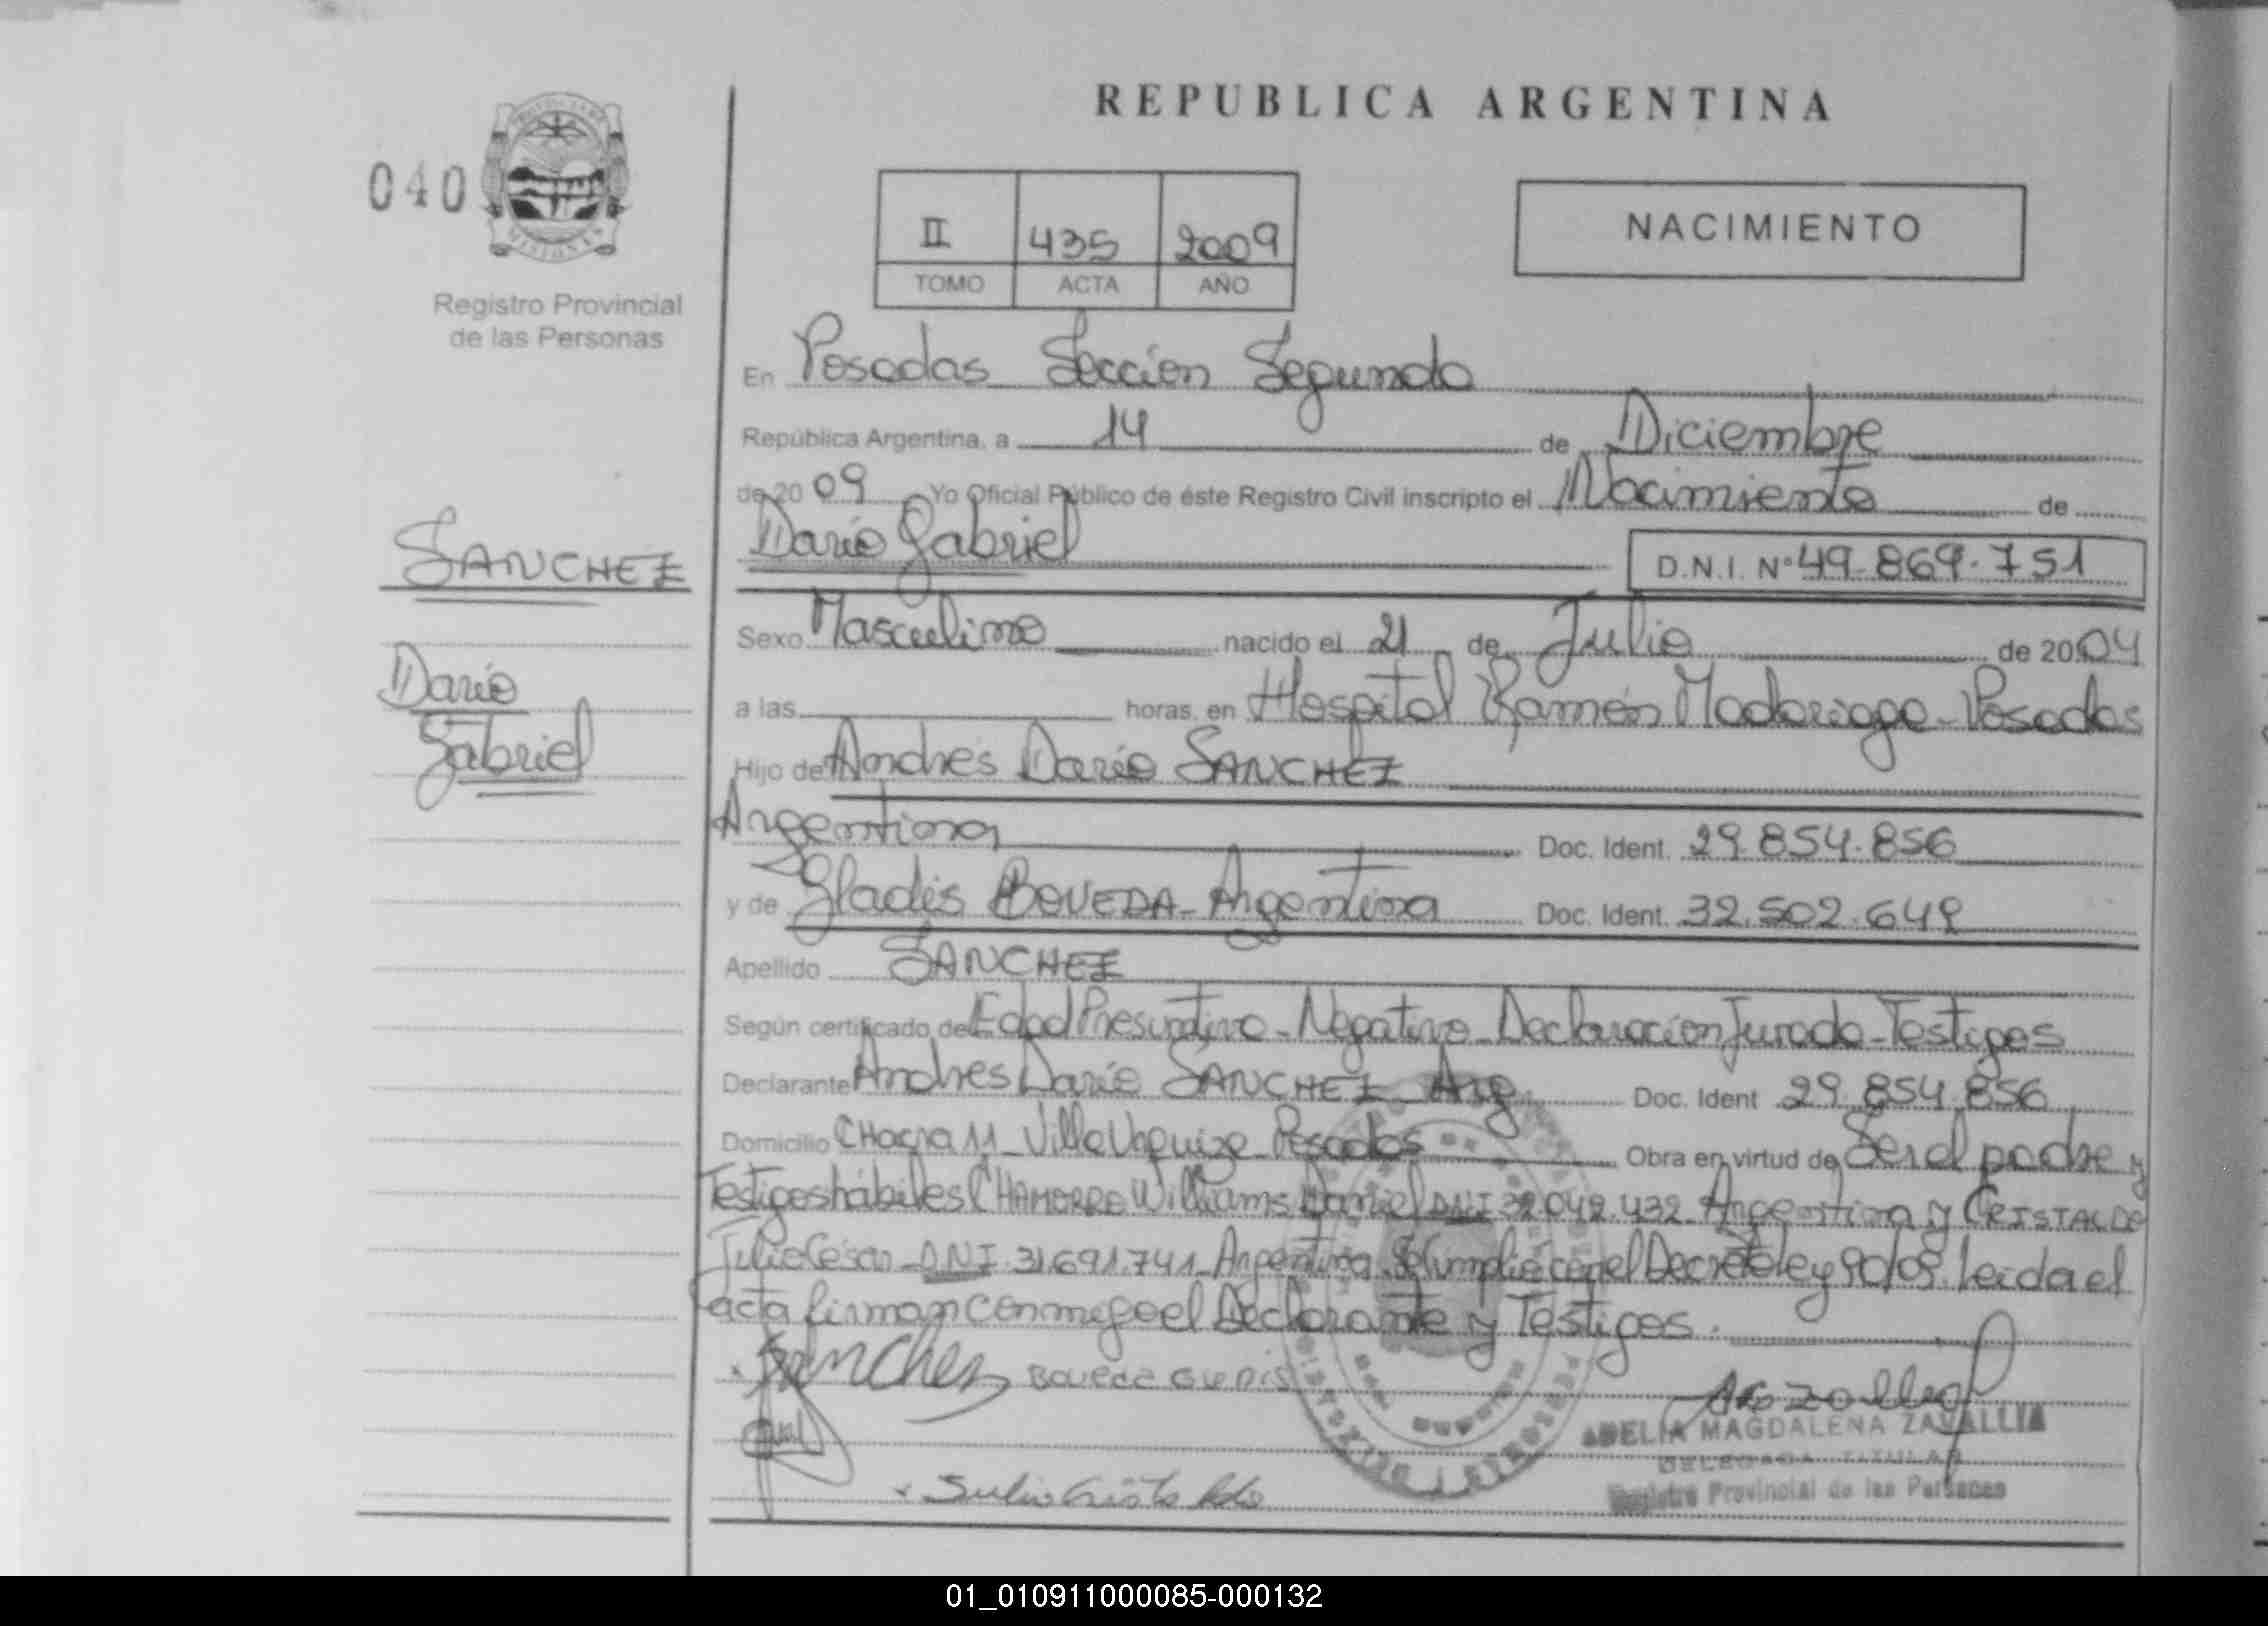 REPUBLICA ARGENTINA
040
II 435 2009
TOMO ACTA AÑO
NACIMIENTO
MISIONES
Registro Provincial
de las Personas
En Posadas Sección Segunda
República Argentina, a 14 de Diciembre
de 20 09 Yo Oficial Público de éste Registro Civil inscripto el Nacimiento de
Darío Gabriel D.N.I. Nº 49.869.751
SANCHEZ
Darío
Gabriel
Sexo Masculino nacido el 21 de Julio de 2004
a las horas, en Hospital Ramón Madariaga - Posadas
Hijo de Andrés Darío SANCHEZ
Argentina Doc. Ident. 29.854.856
y de Gladis BOVEDA - Argentina Doc. Ident. 32.502.649
Apellido SANCHEZ
Según certificado de Edad Presuntiva - Negativo - Declaración Jurada - Testigos
Declarante Andres Darío SANCHEZ - Arg. Doc. Ident 29.854.856
Domicilio CHacra 11 - Villa Urquiza - Posadas Obra en virtud de Ser el padre y
Testigos hábiles CHAMORRO Williams Daniel DNI 32.042.432 - Argentina y CRISTALDO
Julio César - DNI 31.691.741 - Argentina. Se cumplió con el Decreto ley 90/09. Leida el
acta firman conmigo el Declarante y Testigos.
Sanchez BOVEDA GLADIS
Julio Cristaldo
ADELIA MAGDALENA ZAVALLIA
DELEGADA TITULAR
Registro Provincial de las Personas
01_010911000085-000132